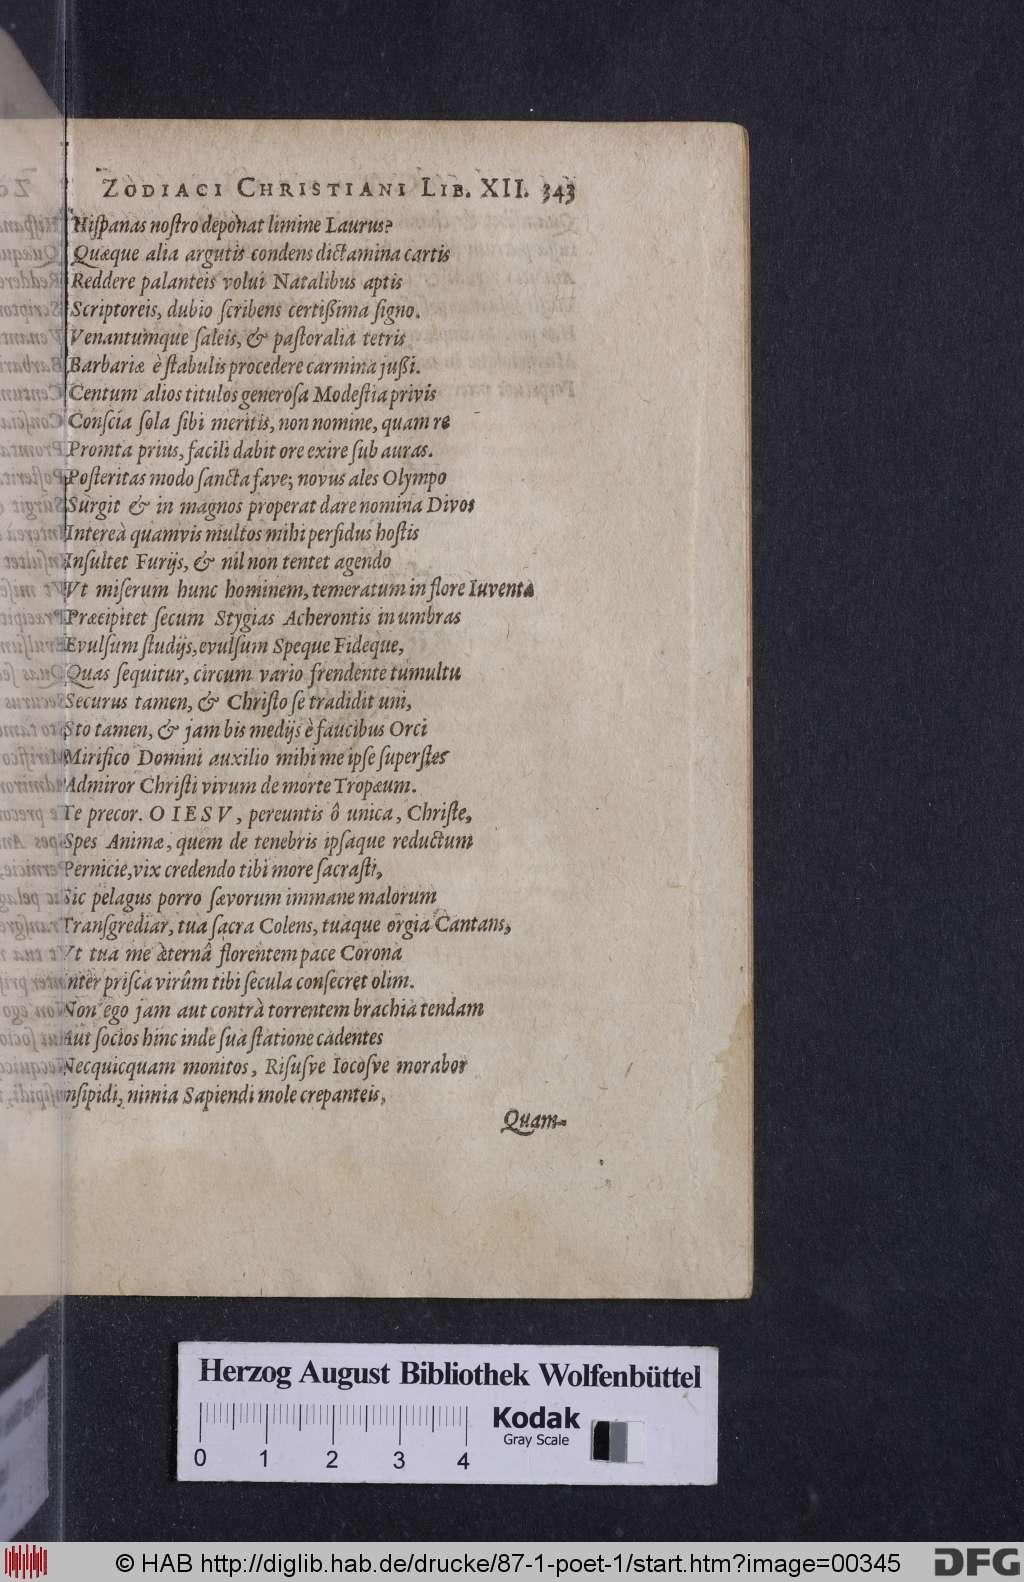 ZODIACI CHRISTIANI LIB. XII. 343
Hiſpanas noſtro deponat limine Laurus?
Quæque alia argutis condens dictamina cartis
Reddere palanteis volui Natalibus aptis
Scriptoreis, dubio ſcribens certißima ſigno.
Venantumque ſaleis, & paſtoralia tetris
Barbariæ è ſtabulis procedere carmina jußi.
Centum alios titulos generoſa Modeſtia privis
Conſcia ſola ſibi meritis, non nomine, quam re
Promta prius, facili dabit ore exire ſub auras.
Poſteritas modo ſancta fave; novus ales Olympo
Surgit & in magnos properat dare nomina Divos
Intereà quamvis multos mihi perfidus hoſtis
Inſultet Furijs, & nil non tentet agendo
Vt miſerum hunc hominem, temeratum in flore Iuventa
Præcipitet ſecum Stygias Acherontis in umbras
Evulſum ſtudijs, evulſum Speque Fideque,
Quas ſequitur, circum vario frendente tumultu
Securus tamen, & Chriſto ſe tradidit uni,
Sto tamen, & jam bis medijs è faucibus Orci
Mirifico Domini auxilio mihi me ipſe ſuperſtes
Admiror Chriſti vivum de morte Tropæum.
Te precor. O IESV, pereuntis ô unica, Chriſte,
Spes Animæ, quem de tenebris ipſaque reductum
Pernicie, vix credendo tibi more ſacraſti,
Sic pelagus porro ſævorum immane malorum
Tranſgrediar, tua ſacra Colens, tuaque orgia Cantans,
Vt tua me æternâ florentem pace Corona
Inter priſca virûm tibi ſecula conſecret olim.
Non ego jam aut contrà torrentem brachia tendam
Aut ſocios hinc inde ſua ſtatione cadentes
Necquicquam monitos, Riſuſve Iocoſve morabor
Inſipidi, nimia Sapiendi mole crepanteis,
Quam-
Herzog August Bibliothek Wolfenbüttel
0 1 2 3 4
Kodak
Gray Scale
© HAB http://diglib.hab.de/drucke/87-1-poet-1/start.htm?image=00345
DFG